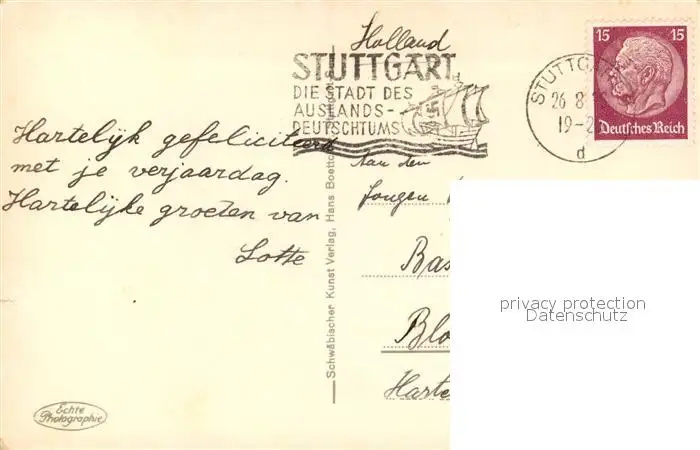 Holland
STUTTGART
DIE STADT DES
AUSLANDS-
DEUTSCHTUMS
STUTTGA
26 8
19-2
d
15 15
Deutsches Reich
Hartelijk gefeliciteerd
met je verjaardag.
Hartelijke groeten van
Lotte
Aan den
Jongen
Bas
Blo
Harte
Schwäbischer Kunst Verlag, Hans Boettc
Echte
Photographie
privacy protection
Datenschutz